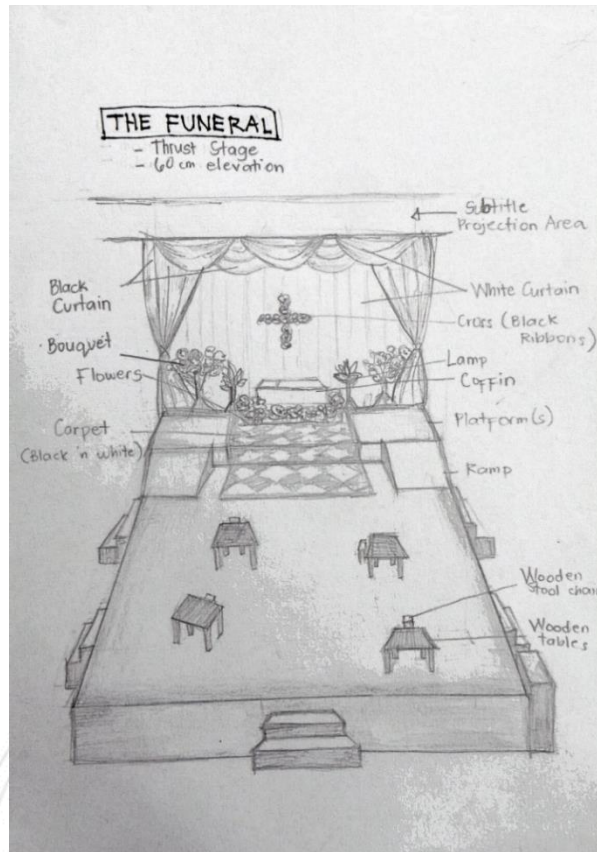 THE FUNERAL
- Thrust Stage
- 60 cm elevation
Subtitle
Projection Area
Black
Curtain
White Curtain
Cross (Black
Ribbons)
Bouquet
Flowers
Lamp
Coffin
Carpet
(Black 'n white)
Platform(s)
Ramp
Wooden
Stool chair
Wooden
tables